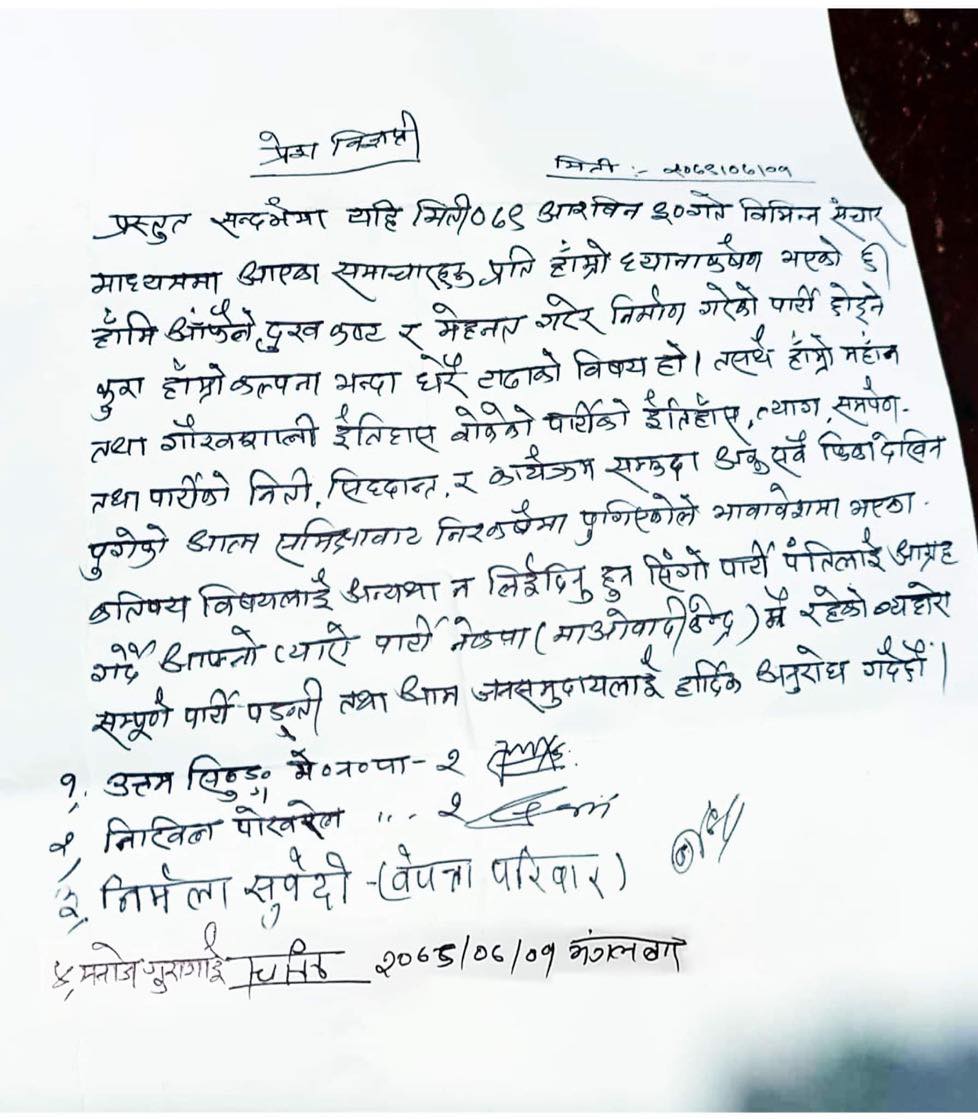 प्रेस विज्ञप्ती
मिती :- २०७९/०७/०१
प्रस्तुत सन्दर्भमा यहि मिती०७९ आश्विन ३०गते विभिन्न संचार
माध्यममा आएका समाचारहरू प्रति हाँम्रो ध्यानाकर्षण भएको छ।
हाँमि आँफैले दुख कष्ट र मेहनत गरेर निर्माण गरेको पार्टी छोड्ने
कुरा हाँम्रो कल्पना भन्दा धेरै टाढाको विषय हो। तसर्थ हाँम्रो महान
तथा गौरवशाली ईतिहास बोकेको पार्टीको ईतिहाँस, त्याग, समर्पण
तथा पार्टीको निती, सिद्दान्त, र कार्यक्रम सम्झदा
पुगेको आत्म समिक्षावाट निश्कर्षमा पुगिएकोले भावावेशमा भएका
कतिपय विषयलाई अन्यथा न लिईदिनु हुन सिंगो पार्टी पंतिलाई आग्रह
गर्दै आफ्नो प्यारो पार्टी नेकपा (माओवादी केन्द्र) मै रहेको व्यहोरा
सम्पूर्ण पार्टी पङ्ती तथा आम जनसमुदायलाई हार्दिक अनुरोध गर्दछौं।
१. उत्तम मे०न०पा- २
२, निखिल पोखरेल ... २
३. निर्मला सुवेदी -(वेपत्ता परिवार)
४, मनोज गुरागाई २०७९/०७/०१ मंगलबार